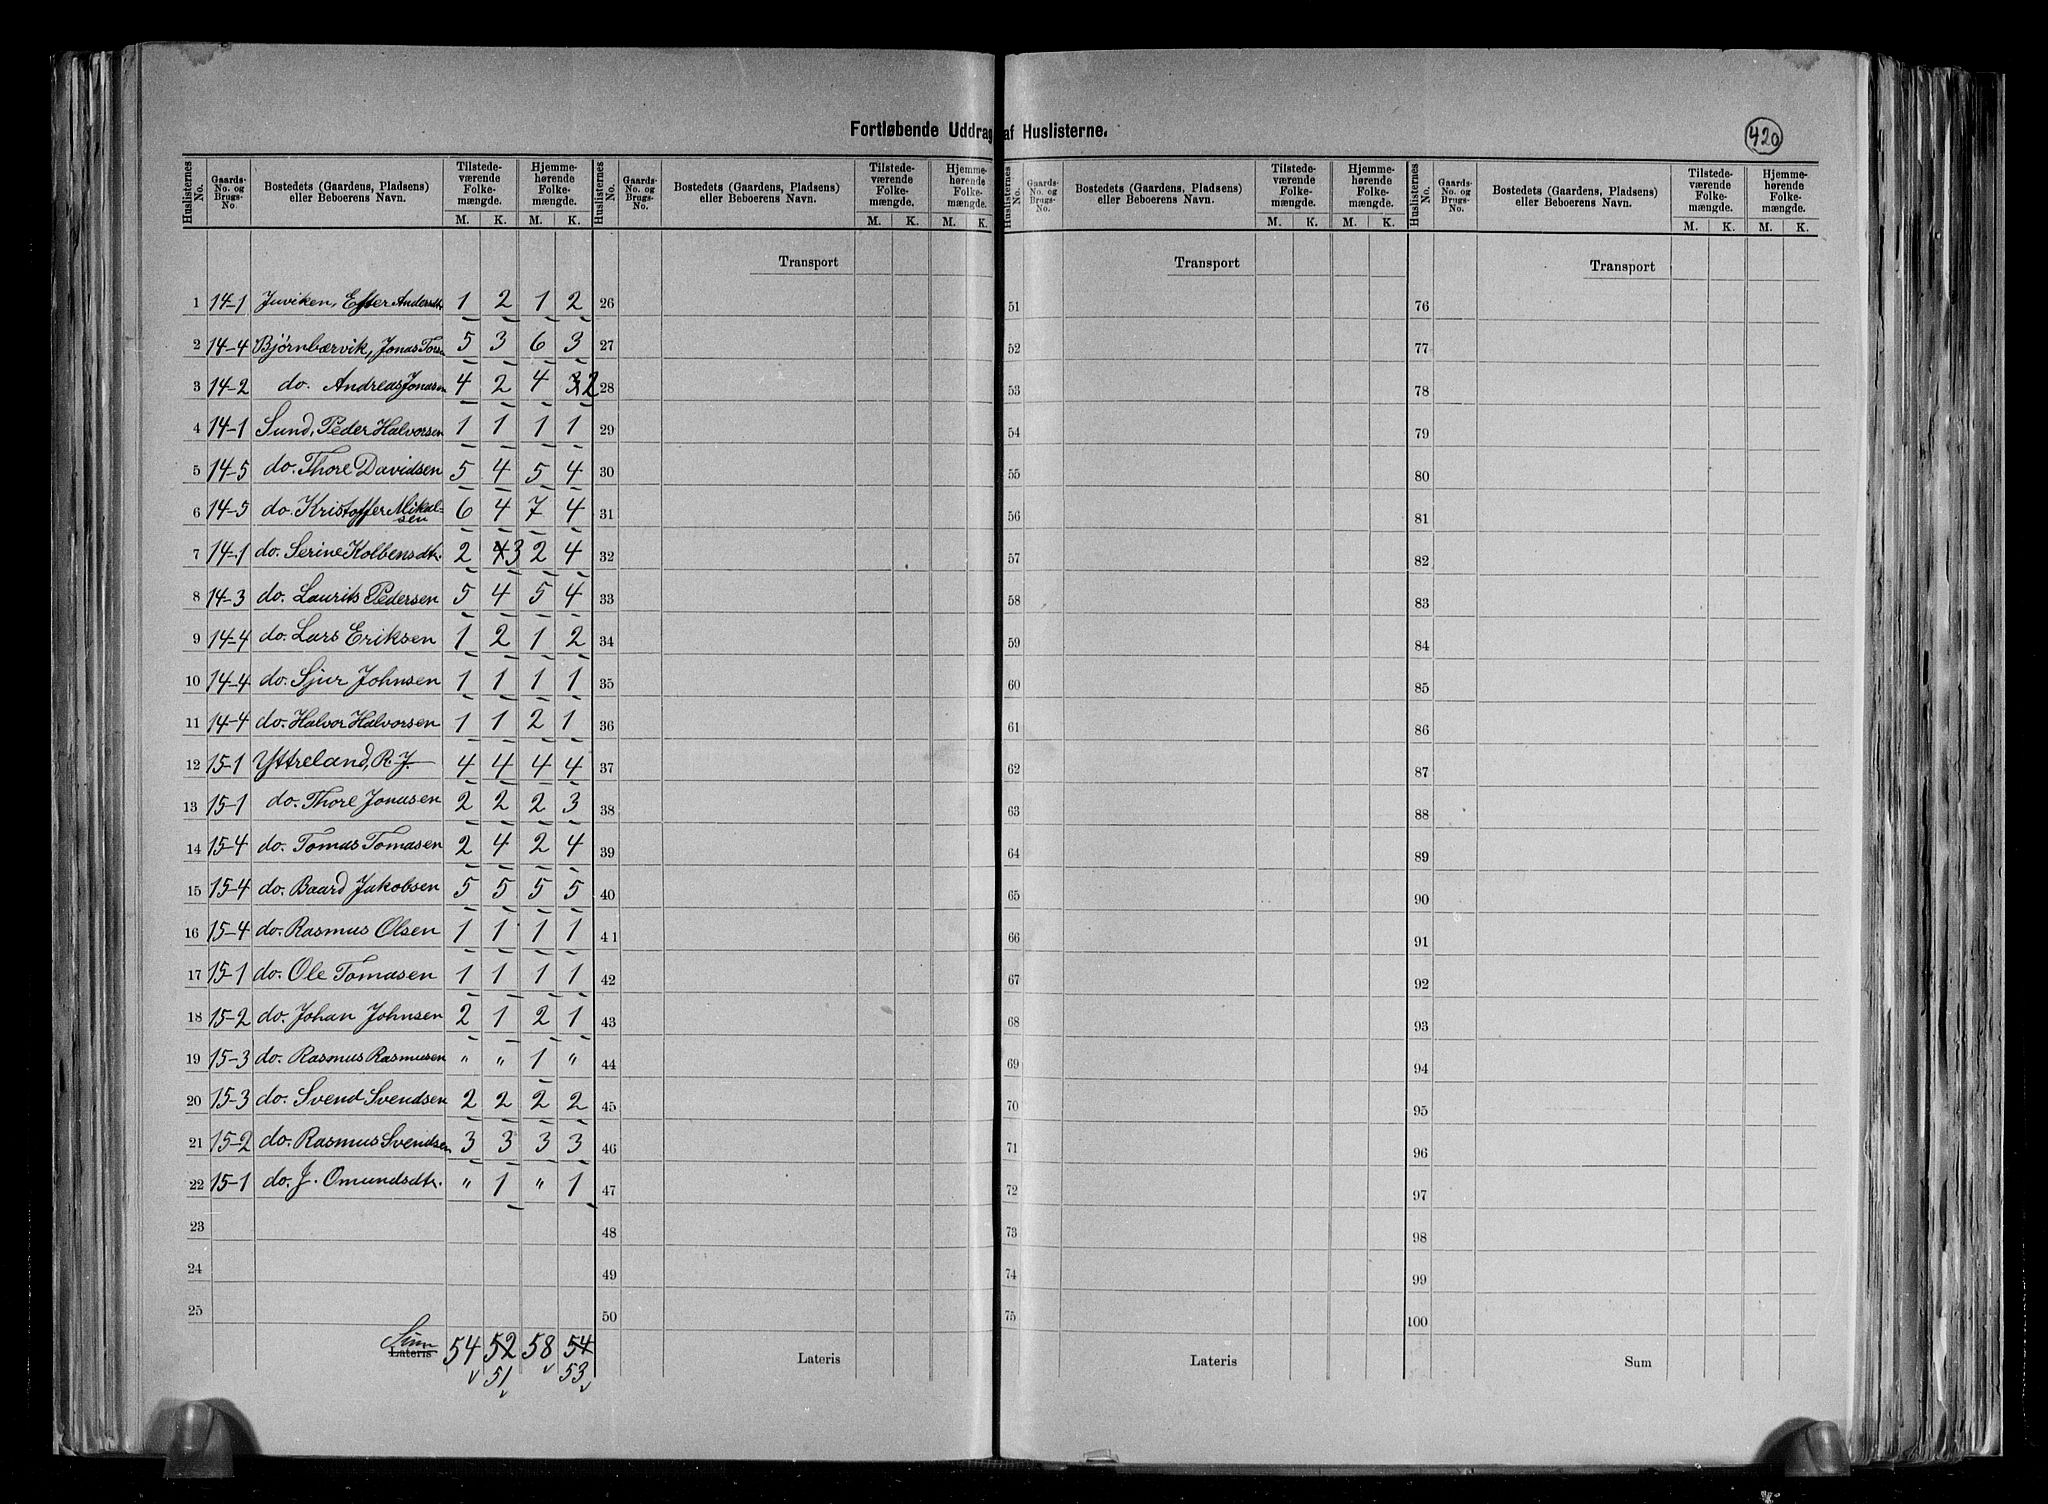 Fortløbende Uddrag af Huslisterne.
420
Huslisternes No. Gaards-No. og Brugs-No. Bostedets (Gaardens, Pladsens) eller Beboerens Navn. Tilstedeværende Folkemængde. M. K. Hjemmehørende Folkemængde. M. K.
Huslisternes No. Gaards-No. og Brugs-No. Bostedets (Gaardens, Pladsens) eller Beboerens Navn. Tilstedeværende Folkemængde. M. K. Hjemmehørende Folkemængde. M. K.
Huslisternes No. Gaards-No. og Brugs-No. Bostedets (Gaardens, Pladsens) eller Beboerens Navn. Tilstedeværende Folkemængde. M. K. Hjemmehørende Folkemængde. M. K.
Huslisternes No. Gaards-No. og Brugs-No. Bostedets (Gaardens, Pladsens) eller Beboerens Navn. Tilstedeværende Folkemængde. M. K. Hjemmehørende Folkemængde. M. K.
Transport Transport Transport
1 14-1 Juviken, Ester Andersdtr 1 2 1 2 26 51 76
2 14-4 Bjørnbærvik, Jonas Torsen 5 3 6 3 27 52 77
3 14-2 do. Andreas Jonasen 4 2 4 3 2 28 53 78
4 14-1 Sund, Peder Halvorsen 1 1 1 1 29 54 79
5 14-5 do. Thore Davidsen 5 4 5 4 30 55 80
6 14-5 do. Kristoffer Mikalsen 6 4 7 4 31 56 81
7 14-1 do. Serine Kolbensdtr. 2 4 3 2 4 32 57 82
8 14-3 do. Laurits Pedersen 5 4 5 4 33 58 83
9 14-4 do. Lars Eriksen 1 2 1 2 34 59 84
10 14-4 do. Sjur Johnsen 1 1 1 1 35 60 85
11 14-4 do. Halvor Halvorsen 1 1 2 1 36 61 86
12 15-1 Yttreland, R. J. 4 4 4 4 37 62 87
13 15-1 do. Thore Jonasen 2 2 2 3 38 63 88
14 15-4 do. Tomas Tomasen 2 4 2 4 39 64 89
15 15-4 do. Baard Jakobsen 5 5 5 5 40 65 90
16 15-4 do. Rasmus Olsen 1 1 1 1 41 66 91
17 15-1 do. Ole Tomasen 1 1 1 1 42 67 92
18 15-2 do. Johan Johnsen 2 1 2 1 43 68 93
19 15-3 do. Rasmus Rasmusen " " 1 " 44 69 94
20 15-3 do. Svend Svendsen 2 2 2 2 45 70 95
21 15-2 do. Rasmus Svendsen 3 3 3 3 46 71 96
22 15-1 do. J. Omundsdtr. " 1 " 1 47 72 97
23 48 73 98
24 49 74 99
25 50 75 100
Sum
Lateris 54 52 58 54 Lateris Lateris Sum
51 53